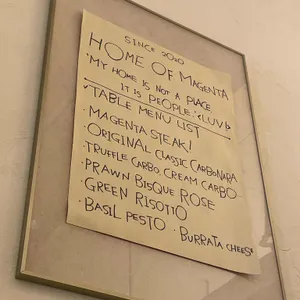 SINCE 2020
HOME OF MAGENTA
"MY HOME IS NOT A PLACE
IT IS PEOPLE" <LUV>
TABLE MENU LIST
· MAGENTA STEAK!
· ORIGINAL CLASSIC CARBONARA
· TRUFFLE CARBO. CREAM CARBO
· PRAWN BISQUE ROSE
· GREEN RISOTTO
· BASIL PESTO · BURRATA CHEESE